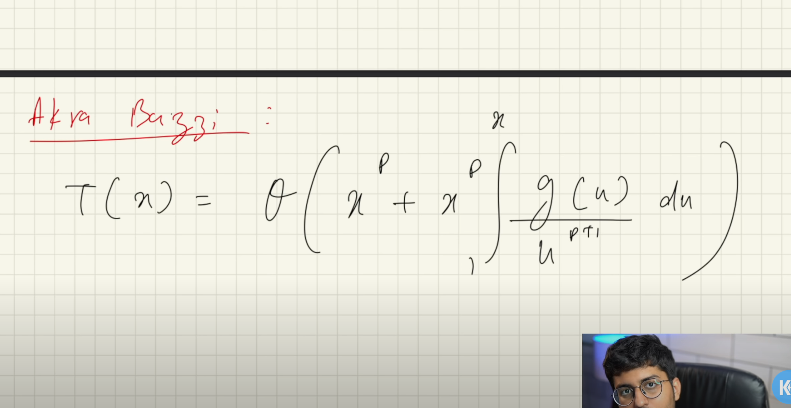 Akra Bazzi :
T(x) = θ(x^p + x^p ∫_1^x g(u)/u^(p+1) du)
K